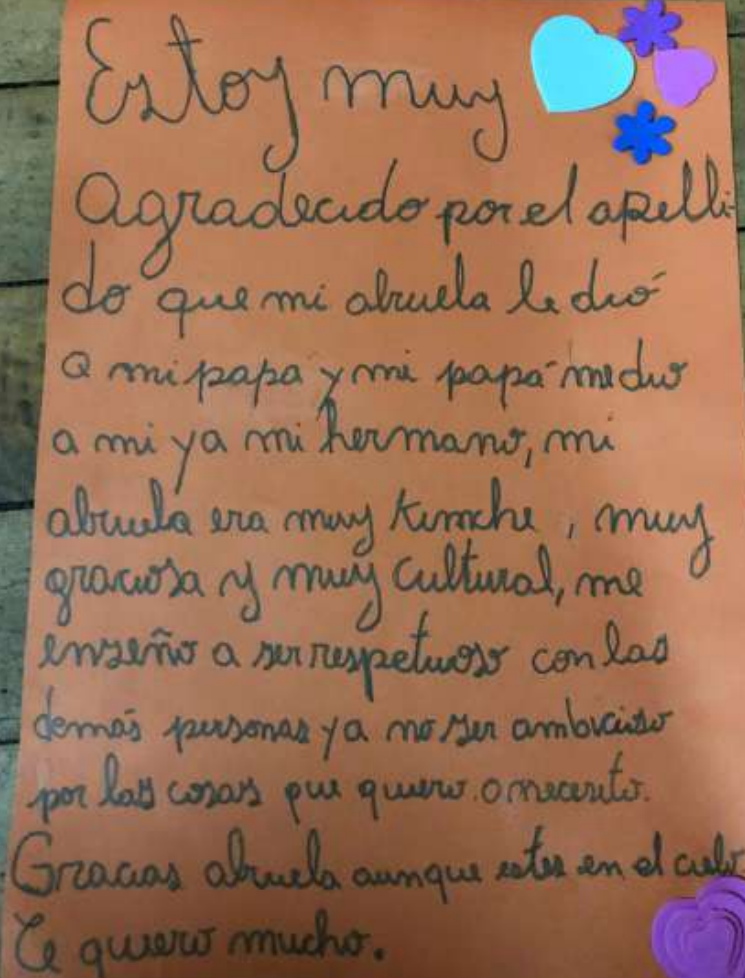 Estoy muy
agradecido por el apelli-
do que mi abuela le dió
a mi papa y mi papá me dio
a mi y a mi hermano, mi
abuela era muy kimche, muy
graciosa y muy cultural, me
enseño a ser respetuoso con las
demás personas y a no ser ambicioso
por las cosas que quiero o necesito.
Gracias abuela aunque estes en el cielo
Te quiero mucho.